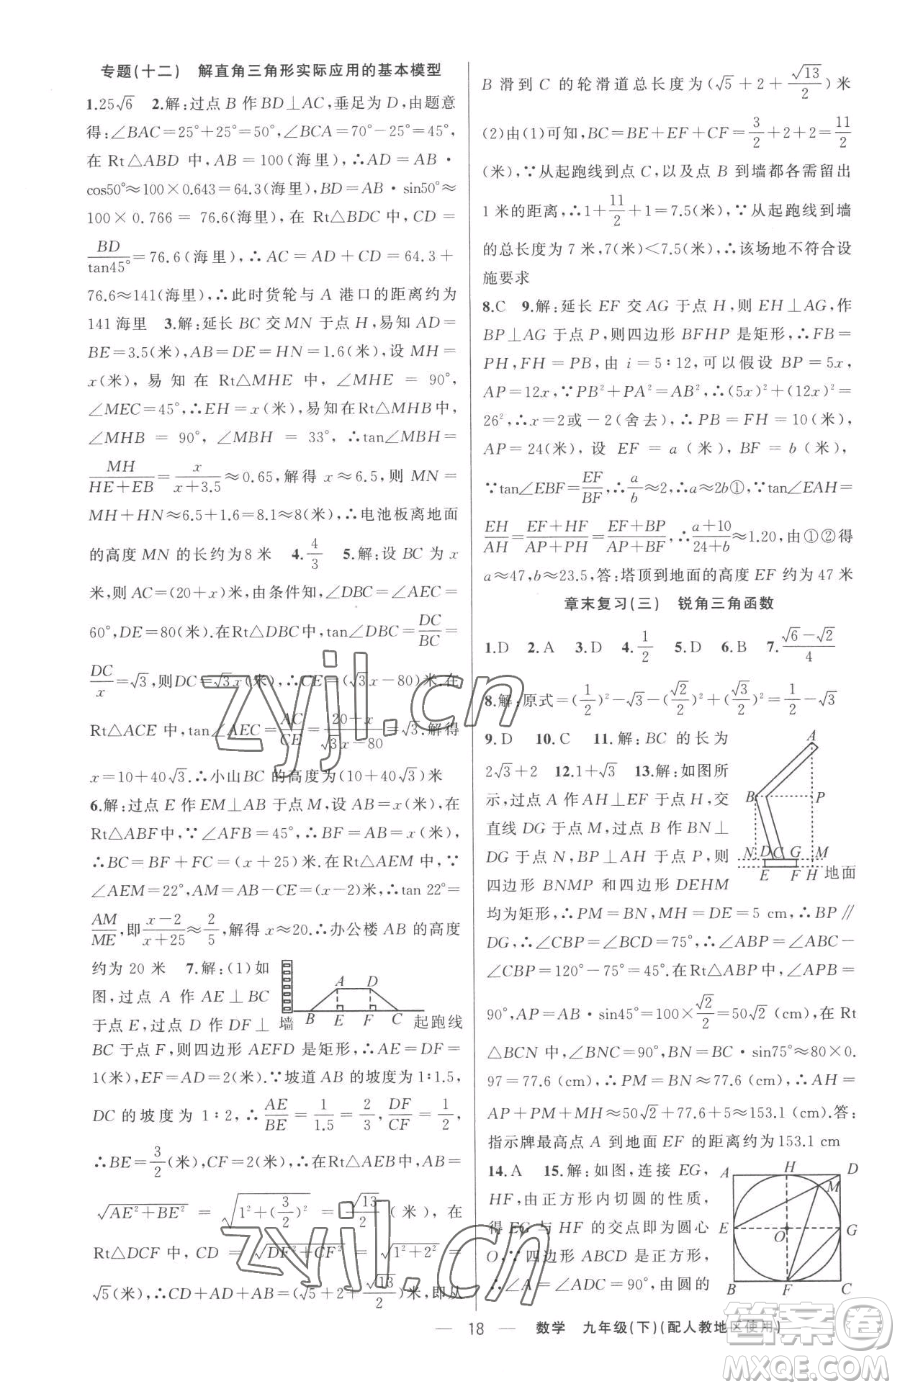 专题(十二) 解直角三角形实际应用的基本模型
1.25√6 2.解:过点 B 作 BD⊥AC,垂足为 D,由题意
得:∠BAC=25°+25°=50°,∠BCA=70°-25°=45°,
在 Rt△ABD 中,AB=100(海里),∴AD=AB·
cos50°≈100×0.643=64.3(海里),BD=AB·sin50°≈
100×0.766=76.6(海里),在 Rt△BDC 中,CD=
BD/tan45°=76.6(海里),∴AC=AD+CD=64.3+
76.6≈141(海里),∴此时货轮与 A 港口的距离约为
141 海里 3.解:延长 BC 交 MN 于点 H,易知 AD=
BE=3.5(米),∴AB=DE=HN=1.6(米),设 MH=
x(米),易知在 Rt△MHE 中,∠MHE=90°,
∠MEC=45°,∴EH=x(米),易知在 Rt△MHB 中,
∠MHB=90°,∠MBH=33°,∴tan∠MBH=
MH/(HE+EB)=x/(x+3.5)≈0.65,解得 x≈6.5,则 MN=
MH+HN≈6.5+1.6=8.1≈8(米),∴电池板离地面
的高度 MN 的长约为8 米 4.4/3 5.解:设 BC 为 x
米,则 AC=(20+x)米,由条件知:∠DBC=∠AEC=
60°,DE=80(米),在Rt△DBC中,tan∠DBC=DC/BC=
DC/x=√3,则DC=√3x(米),∴CE=(√3x-80)(米).在
Rt△ACE 中,tan∠AEC=AC/CE=(20+x)/(√3x-80)=√3.解得
x=10+40√3.∴小山BC 的高度为(10+40√3)米
6.解:过点 E 作EM⊥AB 于点M,设 AB=x(米),在
Rt△ABF中,∵∠AFB=45°,∴BF=AB=x(米),
∴BC=BF+FC=(x+25)(米),在 Rt△AEM 中,
∠AEM=22°,AM=AB-CE=(x-2)(米),tan 22°=
AM/ME,即(x-2)/(x+25)≈2/5,解得 x≈20.∴办公楼 AB 的高度
约为 20 米 7.解:(1)如
图,过点 A 作 AE⊥BC
于点E,过点D 作DF⊥
墙 B E F C 起跑线
A D
BC 于点 F,则四边形 AEFD 是矩形,∴AE=DF=
1(米),EF=AD=2(米),∵坡道 AB 的坡度为 1:1.5,
DC 的坡度为 1:2,∴AE/BE=1/1.5=2/3,DF/CF=1/2,
∴BE=3/2(米),CF=2(米),在 Rt△ABE 中,AB=
√(AE²+BE²)=√(1²+(3/2)²)=√13/2(米),在
Rt△DCF 中,CD=√(DF²+CF²)=√(1²+2²)=
√5(米),∴CD+AD+AB=(√5+2+√13/2)米,即从
B 滑到 C 的轮滑道总长度为(√5+2+√13/2)米
(2)由(1)可知,BC=BE+EF+CF=3/2+2+2=11/2
(米),∵从起跑线到点 C,以及点 B 到墙都各需留出
1米的距离,∴1+11/2+1=7.5(米),∵从起跑线到墙
的总长度为 7 米,7(米)<7.5(米),∴该场地不符合设
施要求
8.C 9.解:延长 EF 交 AG 于点 H,则 EH⊥AG,作
BP⊥AG 于点 P,则四边形 BFHP 是矩形,∴FB=
PH,FH=PB,由 i=5:12,可以假设 BP=5x,
AP=12x,∵PB²+PA²=AB²,∴(5x)²+(12x)²=
26²,∴x=2或-2(舍去),∴PB=FH=10(米),
AP=24(米),设 EF=a(米),BF=b(米),
∵tan∠EBF=EF/BF,∴a/b≈2,∴a≈2b①,∵tan∠EAH=
EH/AH=(EF+HF)/(AP+PH)=(EF+BP)/(AP+BF),∴(a+10)/(24+b)≈1.20,由①②得
a≈47,b≈23.5,答:塔顶到地面的高度 EF 约为 47 米
章末复习(三) 锐角三角函数
1.D 2.A 3.D 4.1/2 5.D 6.B 7.(√6-√2)/4
8.解:原式=(1/2)²-√3-(√2/2)²+(√3/2)²=1/2-√3
9.D 10.C 11.解:BC 的长为
2√3+2 12.1+√3 13.解:如图所
示,过点 A 作 AH⊥EF 于点 H,交
直线 DG 于点 M,过点 B 作 BN⊥
DG 于点 N,BP⊥AH 于点 P,则
四边形 BNMP 和四边形 DEHM
A B P N D C G M E F H 地面
均为矩形,∴PM=BN,MH=DE=5 cm,∴BP∥
DG,∴∠CBP=∠BCD=75°,∴∠ABP=∠ABC-
∠CBP=120°-75°=45°,在 Rt△ABP 中,∠APB=
90°,AP=AB·sin45°=100×√2/2=50√2(cm),在Rt
△BCN 中,∠BNC=90°,BN=BC·sin75°≈80×0.
97=77.6(cm),∴PM=BN=77.6(cm),∴AH=
AP+PM+MH=50√2+77.6+5≈153.1(cm).答:
指示牌最高点 A 到地面 EF 的距离约为153.1 cm
14.A 15.解:如图,连接 EG,
HF,由正方形内切圆的性质,
得 EG 与 HF 的交点即为圆心
O,∵四边形 ABCD 是正方形,
∴∠A=∠ADC=90°,由圆的
A H D M E O G B F C
— 18 — 数学 九年级(下)(配人教地区使用)
zyjl.cn
zyjl.cn
作业精灵
MXQE.COM